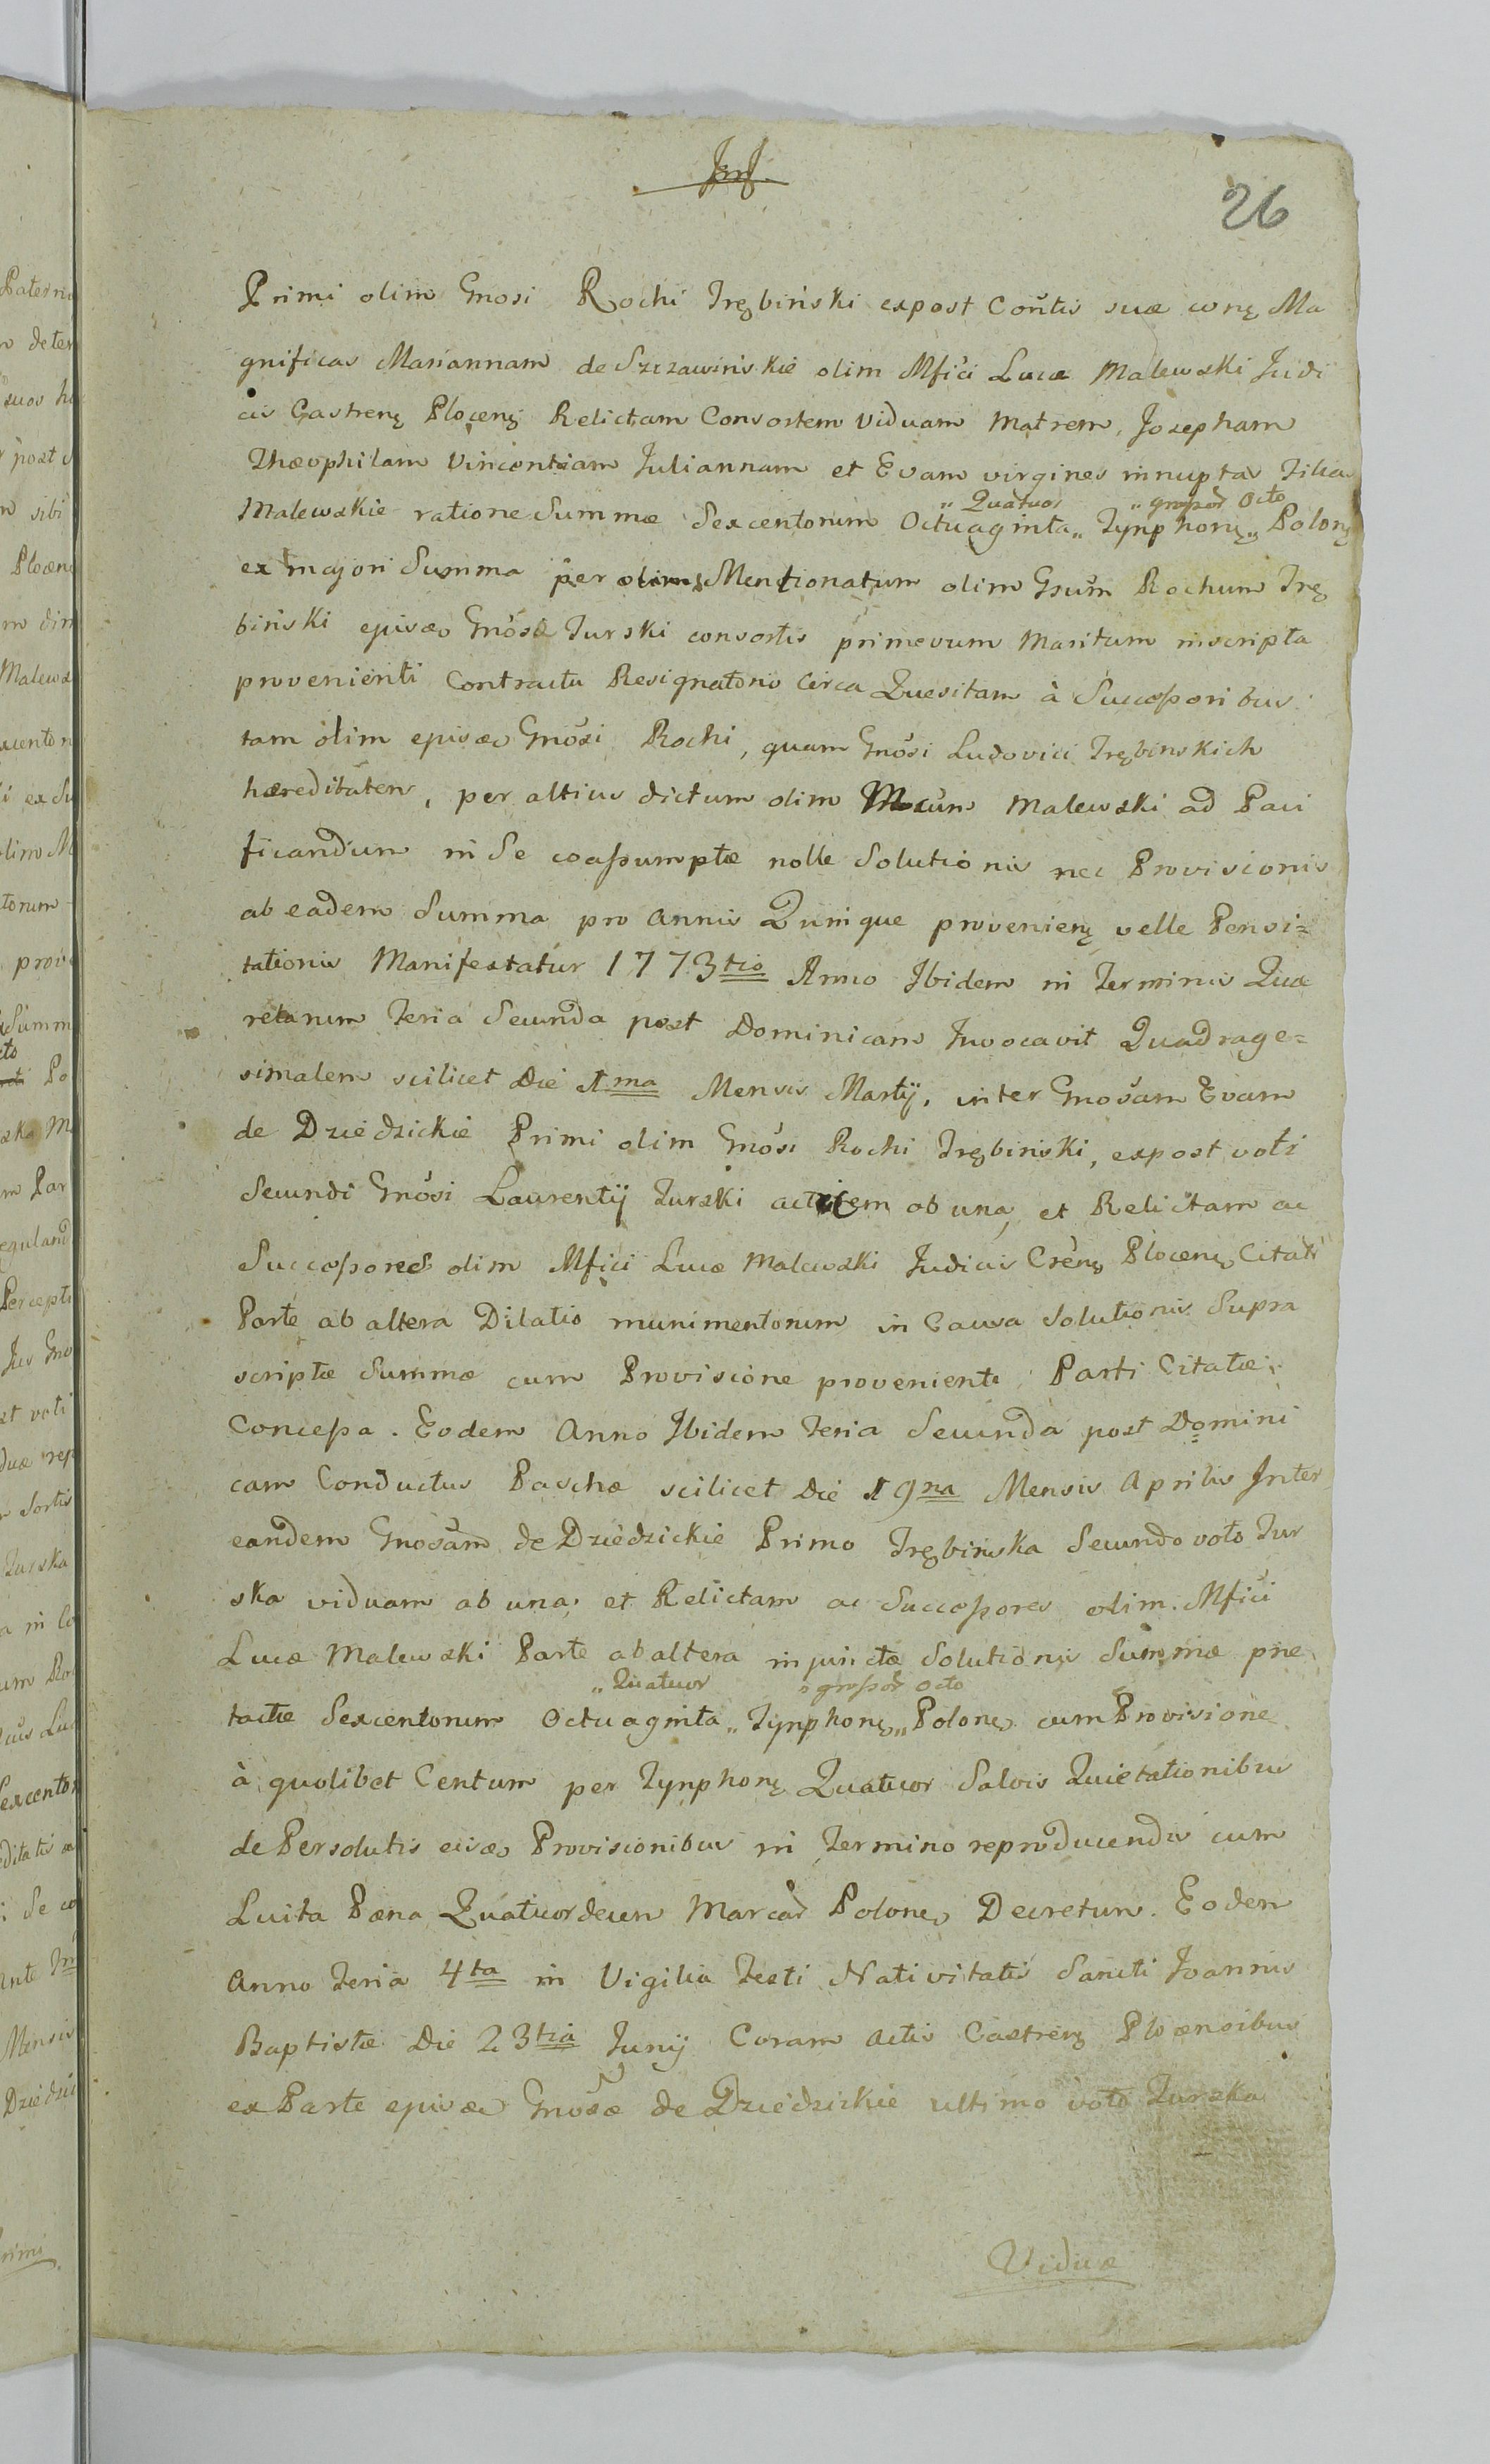 26
Primi olim Gnosi Rochi Trębiński expost Coñtis suæ corą Ma
gnificas Mariannam de Szczawińskie olim Mfici Lucæ Malewski Judi
cis Castrenę Plocenę Relictam Consortem Viduam Matrem, Josepham
Thæophilam Vincentiam Juliannam et Evam virgines innuptas Filias
„ Quatuor „ grossor Octo
Malewskie ratione Summæ Sexcentorum Octuaginta „ Tynphonę „ Polonę
ex majori Summa per Mentionatum olim Gsum Rochum Trę
biński ejusdę Gnosæ Turski consortis primevum Maritum inscripta
provenienti Contractu Resignatorio Circa Quesitam à Successoribus
tam olim ejusdę Gnosi Rochi, quam Gnosi Ludovici Trębinskich
hæreditatem, per altius dictum olim Malewski ad Paci
ficandum in Se coassumptæ nolle Solutionis nec Provisionis
ab eadem Summa pro Annis Quinque provenienę velle Pensi=
tationis Manifestatur 1773tio Anno Ibidem in Terminis Que
relarum Feria Secunda post Dominicam Invocavit Quadrage=
simalem scilicet Die 1ma Mensis Martij, inter Gnosam Evam
de Dziedzickie Primi olim Gnosi Rochi Trębiński, expost voti
Secundi Gnosi Laurentij Turski actricem ab una, et Relictam ac
Successores olim Mfici Lucæ Malewski Judicis Crenę Plocenę Citati
Parte ab altera Dilatio munimentorum in Causa Solutionis Supra
scriptæ Summæ cum Provisione proveniente Parti Citatæ
Concessa. Eodem Anno Ibidem Feria Secunda post Domini
cam Conductus Paschæ scilicet Die 19na Mensis Aprilis Inter
eandem Gnosam de Dziedzickie Primo Trębinska Secundo voto Tur
ska viduam ab una, et Relictam ac Successores olim Mfici
Lucæ Malewski Parte ab altera injunctæ Solutionis Summæ præ
„ Quatuor „ grossor Octo
tactæ Sexcentorum Octuaginta „ Tynphonę „ Polonę cum Provisione
à quolibet Centum per Tynphonę Quatuor Salvis Quietationibus
de Persolutis eisdę Provisionibus in Termino reproducendis cum
Luita Pæna Quatuordecem Marcar Polonę Decretum. Eodem
Anno Feria 4ta in Vigilia Festi Nativitatis Sancti Joannis
Baptistæ Die 23tia Junij Coram Actis Castrenę Plocensibus
ex Parte ejusdę Gnosæ de Dziedzickie ultimo voto Turska
Viduæ